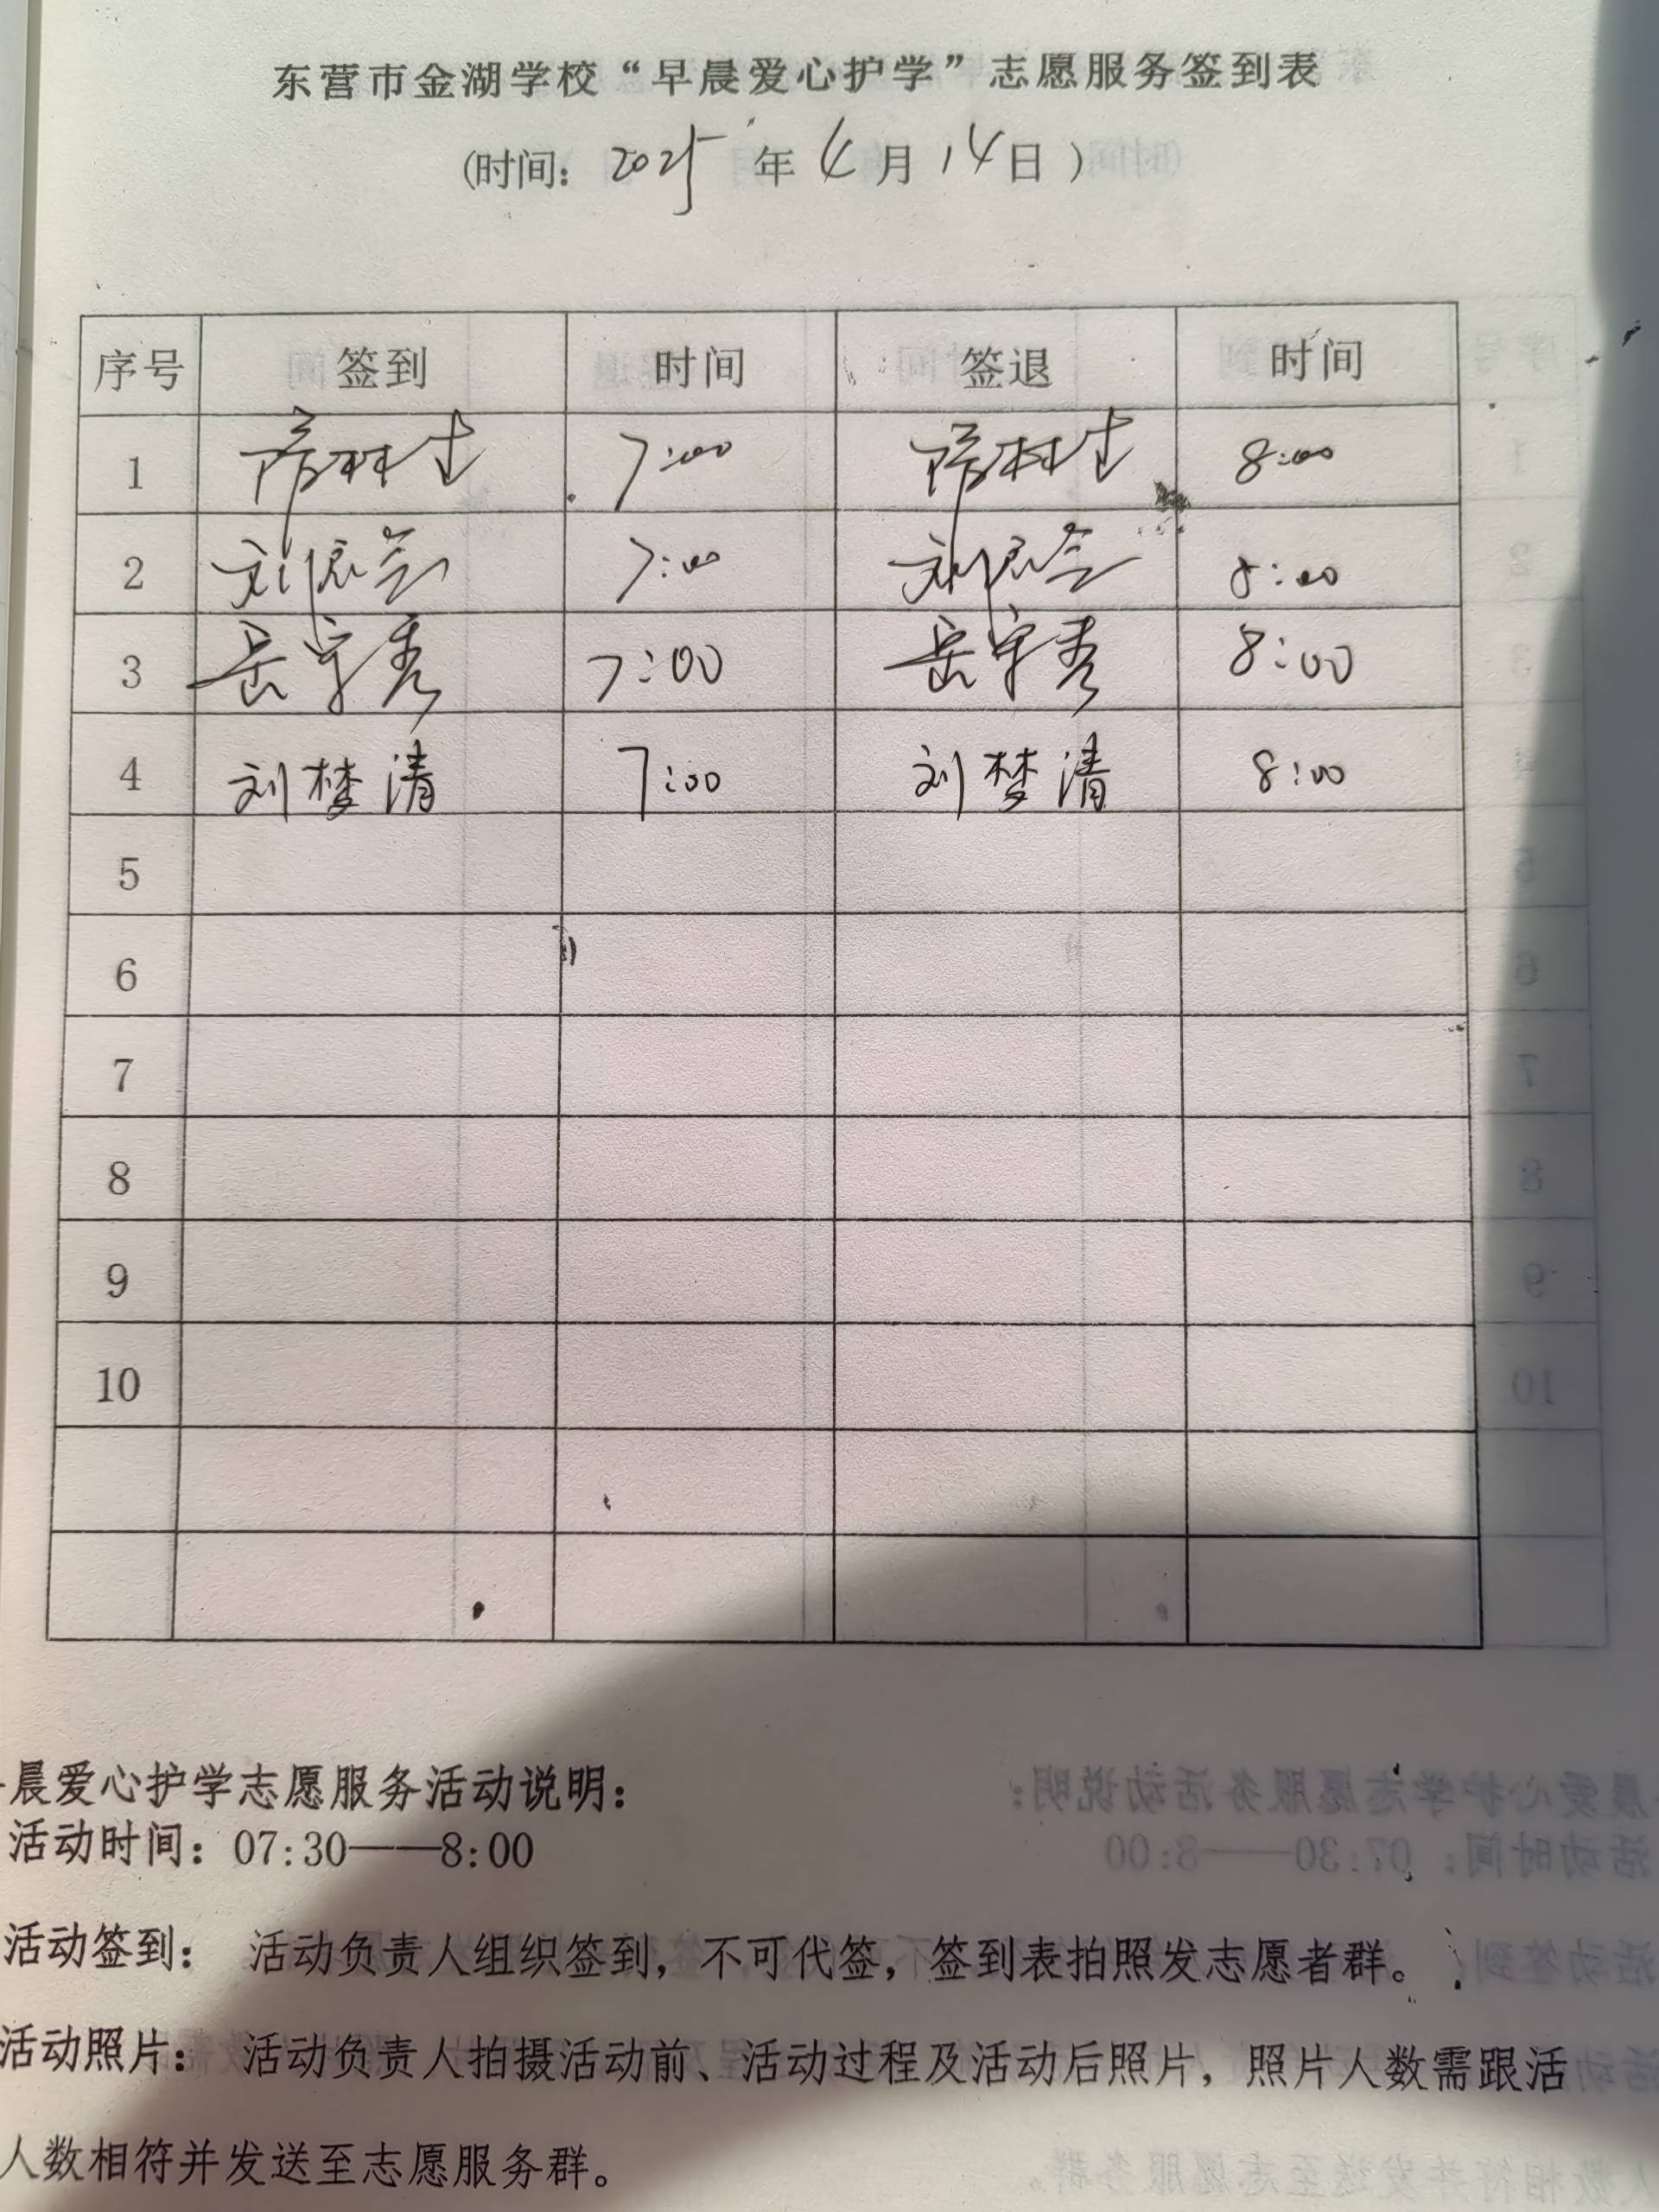 东营市金湖学校“早晨爱心护学”志愿服务签到表
(时间：2025年4月14日)
序号 签到 时间 签退 时间
1 7:00 8:00
2 刘 7:00 刘 8:00
3 岳守秀 7:00 岳守秀 8:00
4 刘梦清 7:00 刘梦清 8:00
5
6
7
8
9
10
晨爱心护学志愿服务活动说明：
活动时间：07:30——8:00
活动签到： 活动负责人组织签到，不可代签，签到表拍照发志愿者群。
活动照片： 活动负责人拍摄活动前、活动过程及活动后照片，照片人数需跟活
人数相符并发送至志愿服务群。